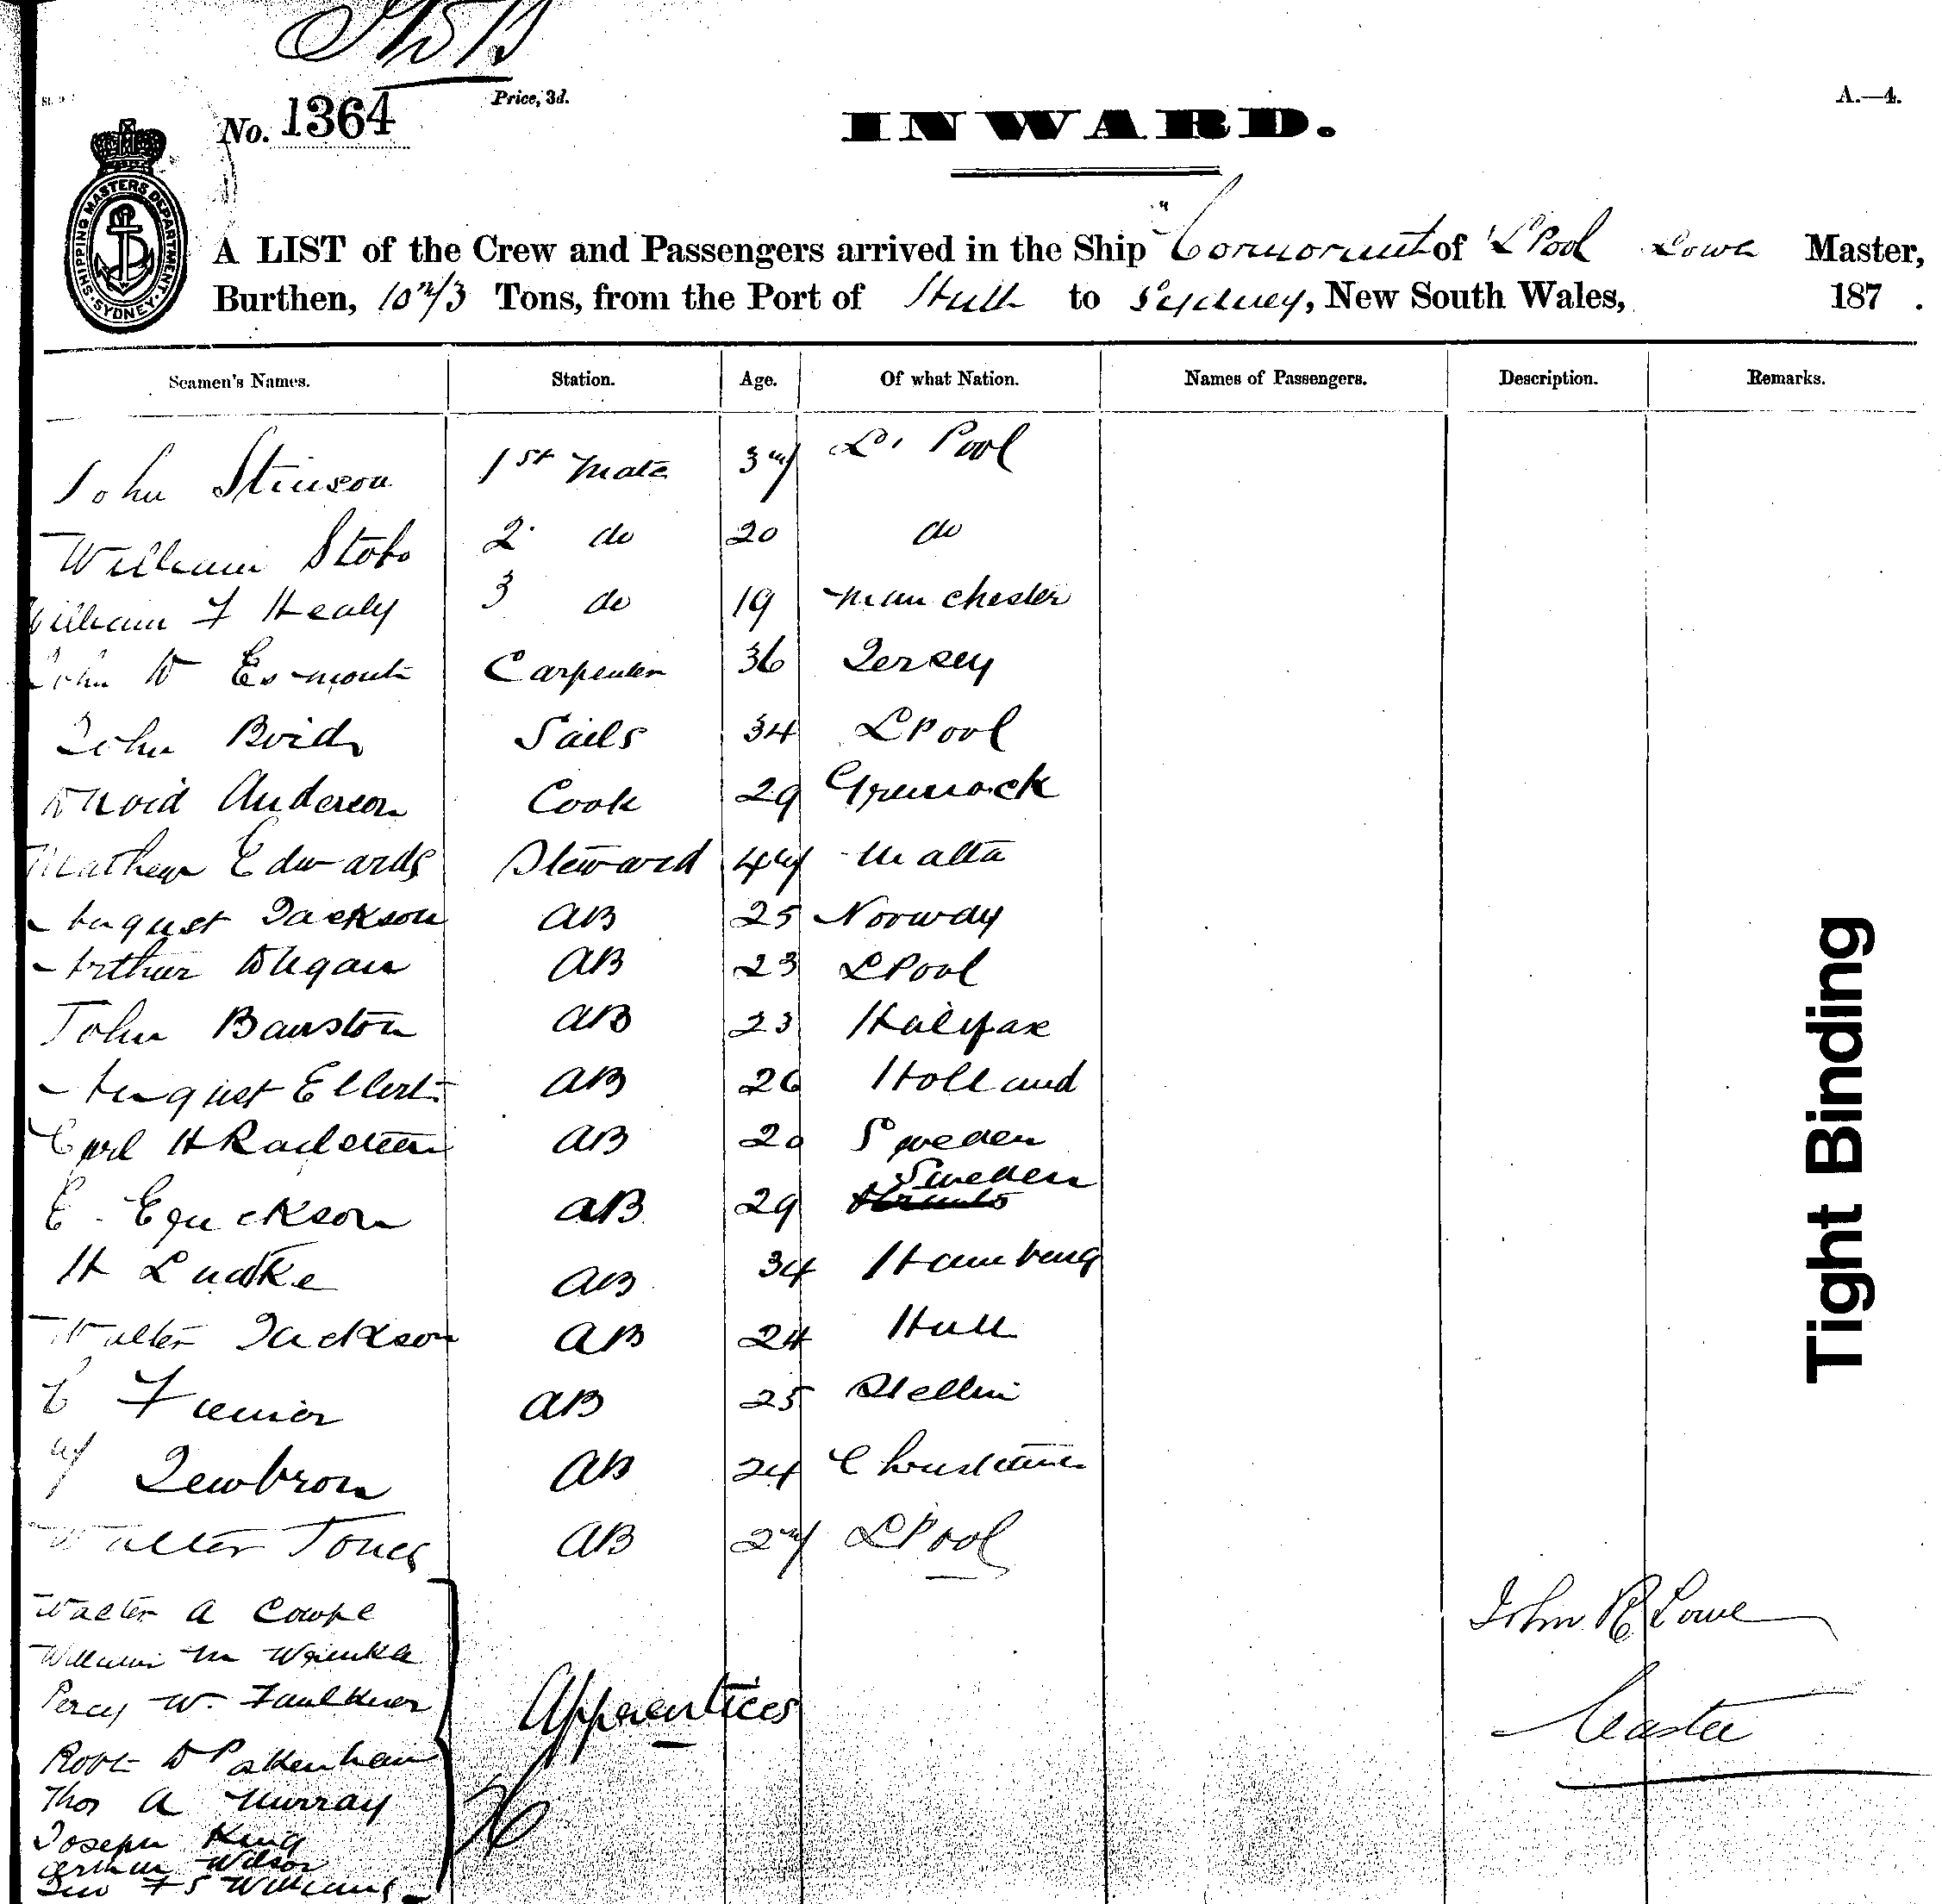 No. 1364
Price, 3d.
A.—4.
INWARD.
SHIPPING MASTERS DEPARTMENT · SYDNEY ·
A LIST of the Crew and Passengers arrived in the Ship "Cormorant of L'Pool Lowe Master,
Burthen, Tons, from the Port of Hull to Sydney, New South Wales, 187 .
Seamen's Names. Station. Age. Of what Nation. Names of Passengers. Description. Remarks.
John Stinson 1st Mate 37 L' Pool
William Stobo 2 do 20 do
William F Healy 3 do 19 Manchester
John D Esmont Carpenter 36 Jersey
John Boid Sails 34 LPool
David Anderson Cook 29 Greenock
Mathew Edwards Steward 47 Malta
August Jackson AB 25 Norway
Arthur Dugan AB 23 LPool
John Banston AB 23 Halifax
August Ellert AB 26 Holland
Carl H AB 20 Sweden
Sweden
E. AB 29
H Ludtke AB 34 Hamburg
Walter Jackson AB 24 Hull
C AB 25 Stettin
AB 24 Christiania
Walter Jones AB 27 LPool
Walter A Cowpe
William M Wrinkle
Percy W. Faulkner
Apprentices
Robt D Pakenham
Thos A Murray
Joseph King
Arthur Wilson
Geo F S Williams
John R Lowe
Master
Tight Binding